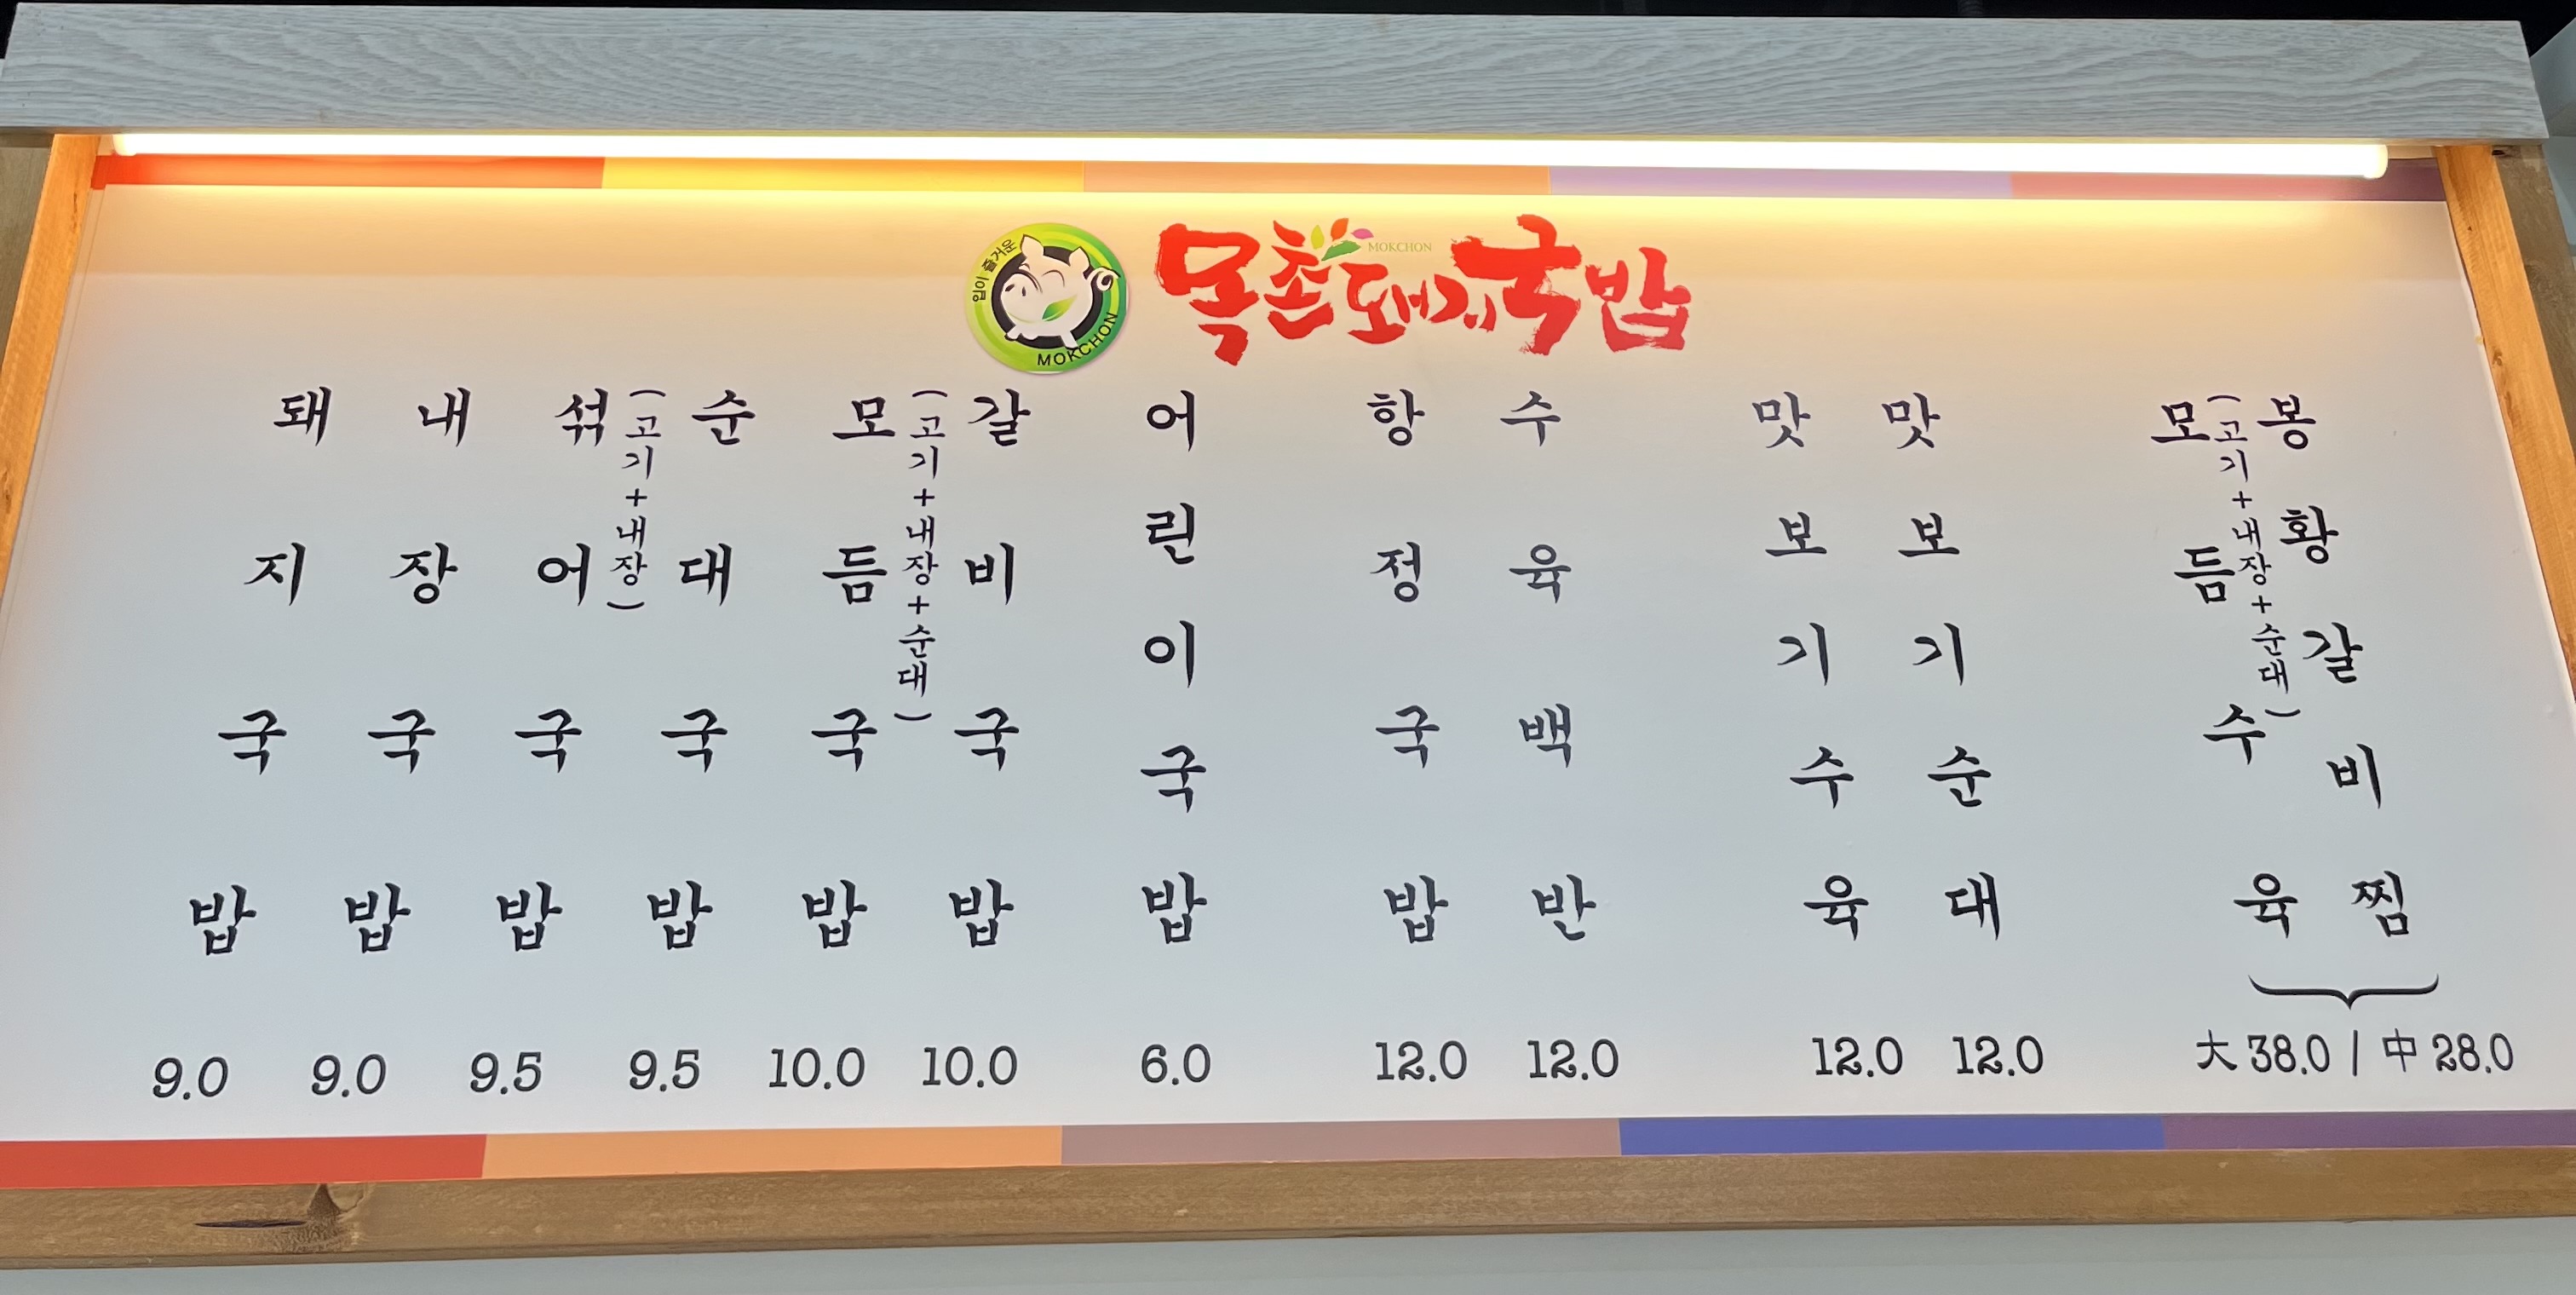 입이 즐거운
MOKCHON
목촌돼지국밥
MOKCHON
돼지국밥
9.0
내장국밥
9.0
섞어국밥
(고기+내장)
9.5
순대국밥
9.5
모듬국밥
(고기+내장+순대)
10.0
갈비국밥
10.0
어린이국밥
6.0
항정국밥
12.0
수육백반
12.0
맛보기수육
12.0
맛보기순대
12.0
모듬수육
(고기+내장+순대)
봉황갈비찜
大 38.0 / 中 28.0